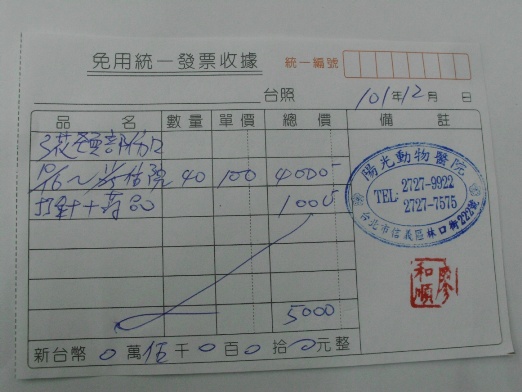 免用統一發票收據
統一編號
台照
101年12月 日
品名 數量 單價 總價 備註
3花
住院 40 100 4000
打針+藥品 1000
5000
新台幣 0萬伍千0百0拾0元整
陽光動物醫院
TEL: 2727-9922
2727-7575
台北市信義區林口街222號
和順